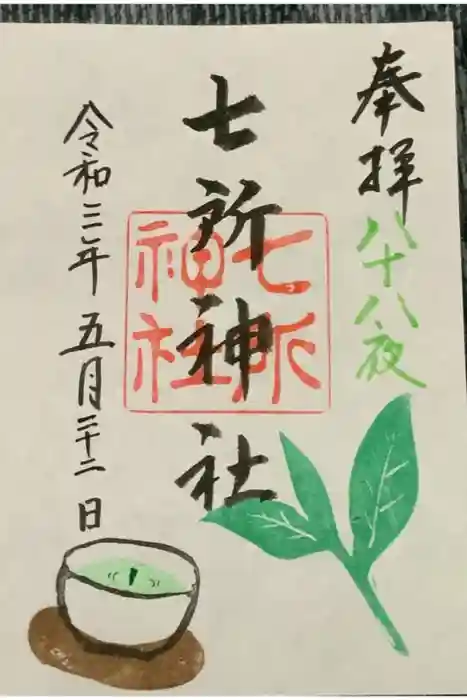 奉拝
八十八夜
七所神社
七所
神社
令和三年五月二十二日